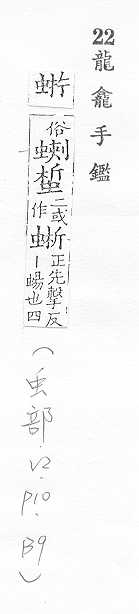 22 龍龕手鑑
俗
蜤
二或作
蜥
正先擊反
ー蜴也四
(虫部.V2.P10.B9)